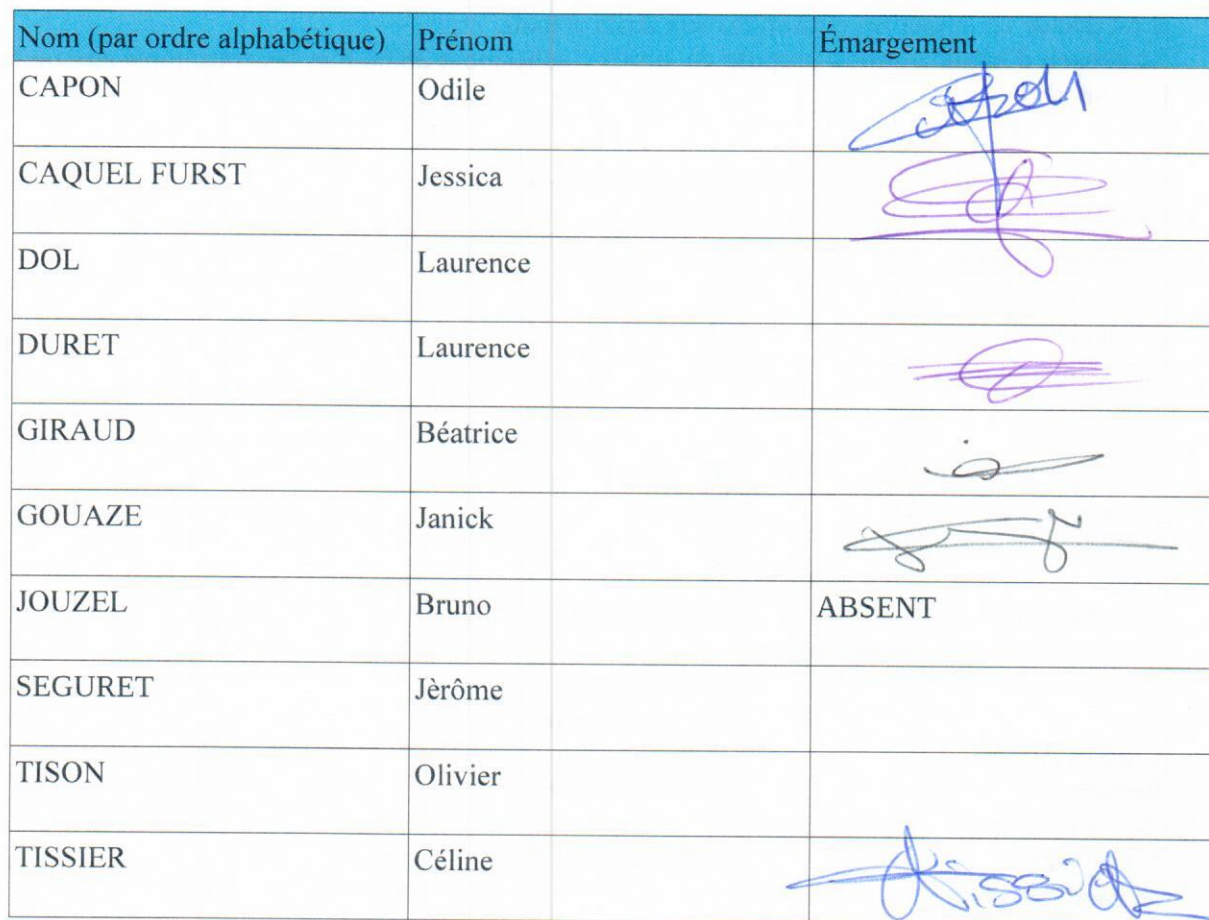 Nom (par ordre alphabétique) Prénom Émargement
CAPON Odile
CAQUEL FURST Jessica
DOL Laurence
DURET Laurence
GIRAUD Béatrice
GOUAZE Janick
JOUZEL Bruno ABSENT
SEGURET Jèrôme
TISON Olivier
TISSIER Céline